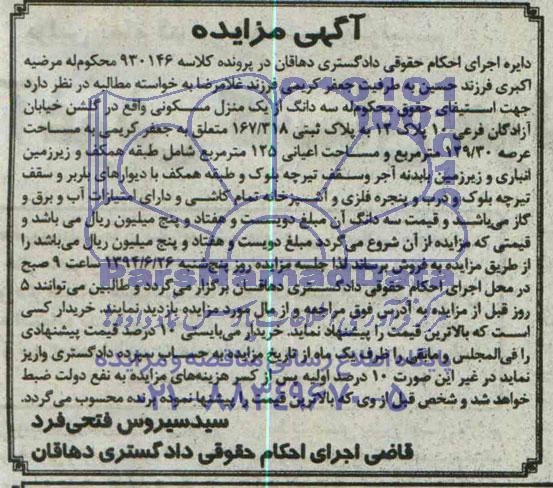 آگهی مزایده
دایره اجرای احکام حقوقی دادگستری دهاقان در پرونده کلاسه ۹۳۰۱۴۶ محکوم‌له مرضیه
اکبری فرزند حسین به طرفیت جعفر کریمی فرزند غلامرضا به خواسته مطالبه در نظر دارد
جهت استیفای حقوق محکوم‌له سه دانگ از یک منزل مسکونی واقع در گلشن خیابان
آزادگان فرعی ۱۰ پلاک ۱۲ به پلاک ثبتی ۱۶۷/۳۱۸ متعلق به جعفر کریمی به مساحت
عرصه ۱۳۹/۳۰ مترمربع و مساحت اعیانی ۱۲۵ مترمربع شامل طبقه همکف و زیرزمین
انباری و زیرزمین بابدنه آجر وسقف تیرچه بلوک و طبقه همکف با دیوارهای باربر و سقف
تیرچه بلوک و درب و پنجره فلزی و آشپزخانه تمام کاشی و دارای امتیازات آب و برق و
گاز می‌باشد و قیمت سه دانگ آن مبلغ دویست و هفتاد و پنج میلیون ریال می باشد و
قیمتی که مزایده از آن شروع می‌گردد مبلغ دویست و هفتاد و پنج میلیون ریال می‌باشد را
از طریق مزایده به فروش برساند لذا جلسه مزایده روز پنج‌شنبه ۱۳۹۴/۶/۲۶ ساعت ۹ صبح
در محل اجرای احکام حقوقی دادگستری دهاقان برگزار می گردد و طالبین می‌توانند ۵
روز قبل از مزایده به آدرس فوق مراجعه و از مال مورد مزایده بازدید نمایند. خریدار کسی
است که بالاترین قیمت را پیشنهاد نماید. خریدار می‌بایستی ۱۰ درصد قیمت پیشنهادی
را فی‌المجلس و مابقی را ظرف یک ماه از تاریخ مزایده به حساب سپرده دادگستری واریز
نماید در غیر این صورت ۱۰ درصد اولیه پس از کسر هزینه‌های مزایده به نفع دولت ضبط
خواهد شد و شخص قبل از وی که بالاترین قیمت را پیشنهاد نموده برنده محسوب می‌گردد.
سیدسیروس فتحی‌فرد
قاضی اجرای احکام حقوقی دادگستری دهاقان
ParsNamadData
۰۲۱-۸۸۳۴۹۶۷۰-۵